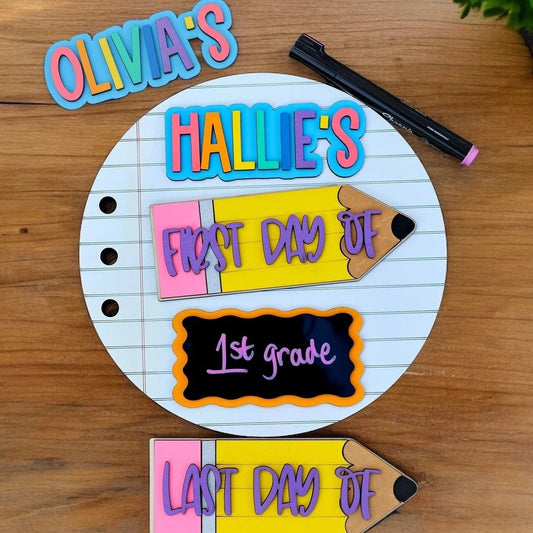 OLIVIA'S
HALLIE'S
FIRST DAY OF
1st grade
LAST DAY OF